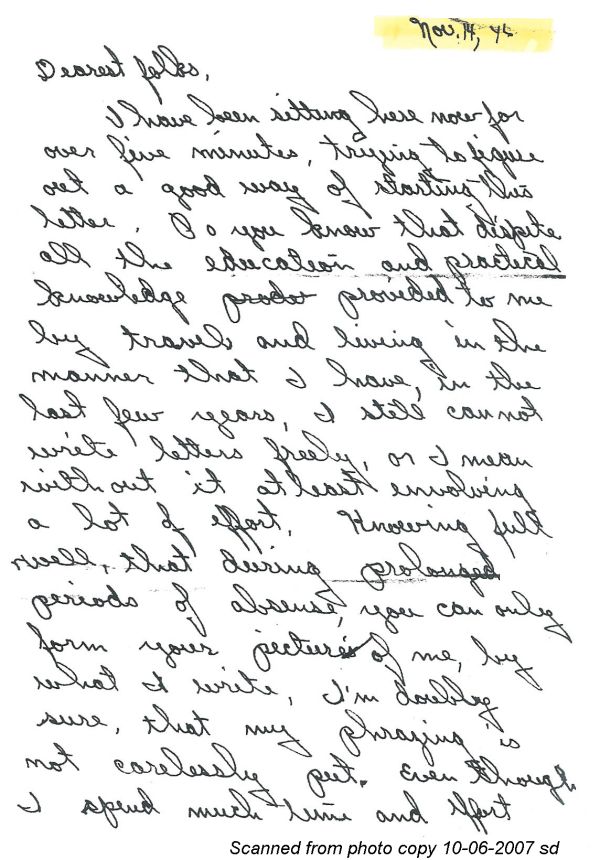 Nov. 14, 45
Dearest folks,
I have been setting here now for
over five minutes, trying to figure
out a good way of starting this
letter. Do you know that despite
all the education and practical
knowledge provided to me
by travels and living in the
manner that I have, in the
last few years, I still cannot
write letters freely, or I mean
without it at least involving
a lot of effort. Knowing full
well, that during prolonged
periods of absense, you can only
form your pictures of me, by
what I write, I'm doubly
sure, that my phrazing is
not carelessly put. Even though
I spend much time and effort
Scanned from photo copy 10-06-2007 sd